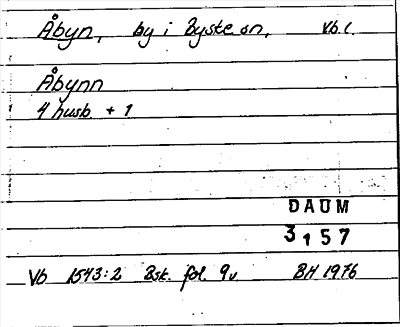 Åbyn, by i Byske sn, Vb l.
Åbynn
4 husb. + 1
DAUM
3157
Vb 1543:2 Bsk. fol. 9v BH 1976